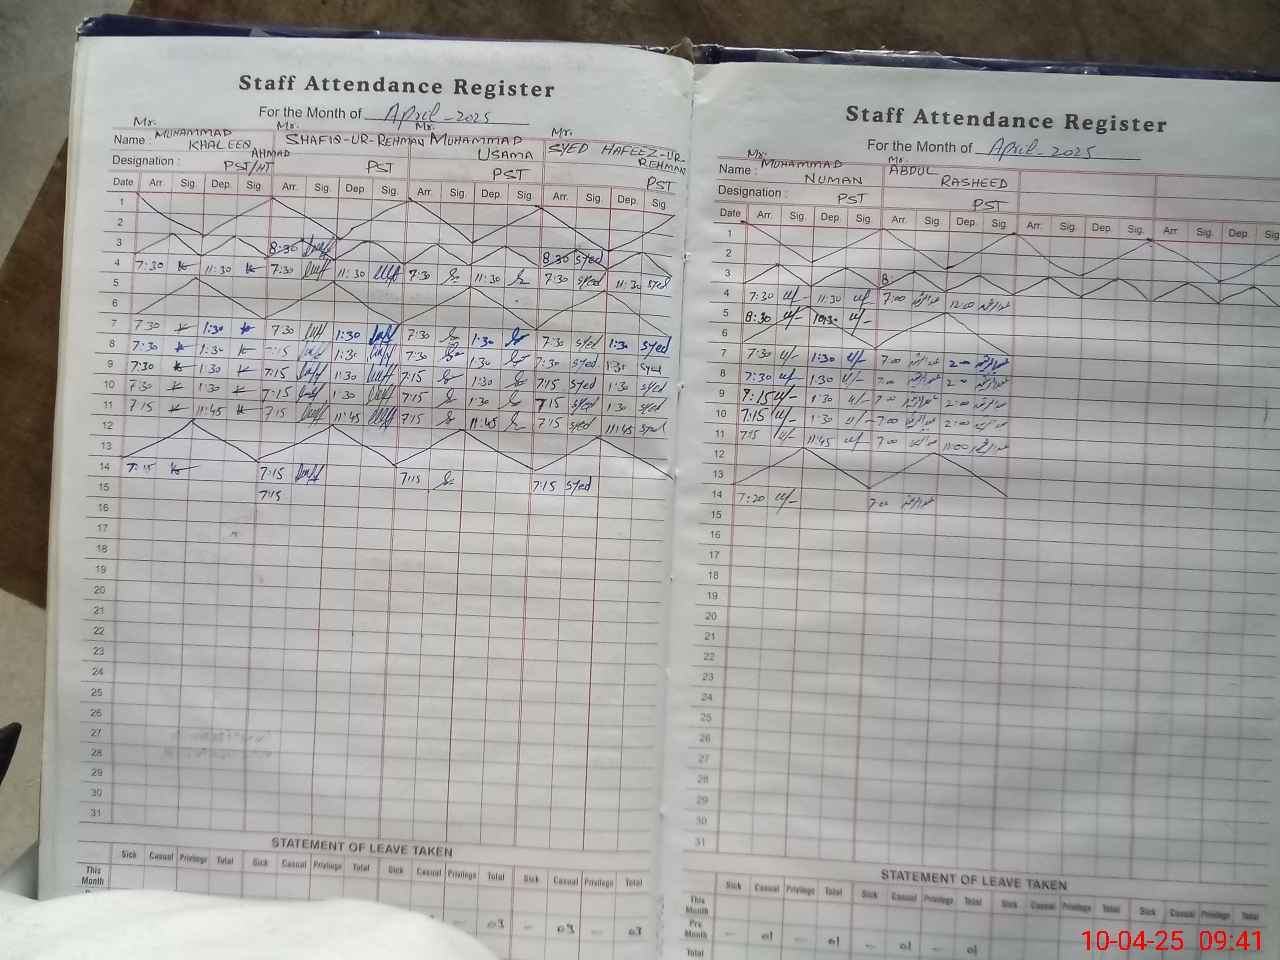 Staff Attendance Register
For the Month of April-2025
Mr. Mr. Mr. Mr.
Name : MUHAMMAD KHALEEQ AHMAD SHAFIQ-UR-REHMAN MUHAMMAD USAMA SYED HAFEEZ-UR-REHMAN
Designation : PST/HT PST PST PST
Date Arr. Sig. Dep. Sig. Arr. Sig. Dep. Sig. Arr. Sig. Dep. Sig. Arr. Sig. Dep. Sig.
1
2
3 8:30 8:30 syed
4 7:30 11:30 7:30 11:30 7:30 11:30 7:30 syed 11:30 syed
5
6
7 7:30 1:30 7:30 1:30 7:30 1:30 7:30 syed 1:30 syed
8 7:30 1:30 7:15 1:30 7:30 1:30 7:30 syed 1:30 syed
9 7:30 1:30 7:15 1:30 7:15 1:30 7:15 syed 1:30 syed
10 7:30 1:30 7:15 1:30 7:15 1:30 7:15 syed 1:30 syed
11 7:15 11:45 7:15 11:45 7:15 11:45 7:15 syed 11:45 syed
12
13
14 7:15 7:15 7:15 7:15 syed
15 7:15
16
17
18
19
20
21
22
23
24
25
26
27
28
29
30
31
STATEMENT OF LEAVE TAKEN
Sick Casual Privilege Total Sick Casual Privilege Total Sick Casual Privilege Total Sick Casual Privilege Total
This Month
03 03 03
Staff Attendance Register
For the Month of April-2025
Mr. Mr.
Name : MUHAMMAD NUMAN ABDUL RASHEED
Designation : PST PST
Date Arr. Sig. Dep. Sig. Arr. Sig. Dep. Sig. Arr. Sig. Dep. Sig. Arr. Sig. Dep. Sig.
1
2
3 8:
4 7:30 11:30 7:00 12:00
5 8:30 10:30
6
7 7:30 1:30 7:00 2:00
8 7:30 1:30 7:00 2:00
9 7:15 1:30 7:00 2:00
10 7:15 1:30 7:00 2:00
11 7:15 11:45 7:00 11:00
12
13
14 7:20 7:00
15
16
17
18
19
20
21
22
23
24
25
26
27
28
29
30
31
STATEMENT OF LEAVE TAKEN
Sick Casual Privilege Total Sick Casual Privilege Total Sick Casual Privilege Total Sick Casual Privilege Total
This Month
Pre Month - 01 - 01 - 01 - 01
Total
10-04-25 09:41